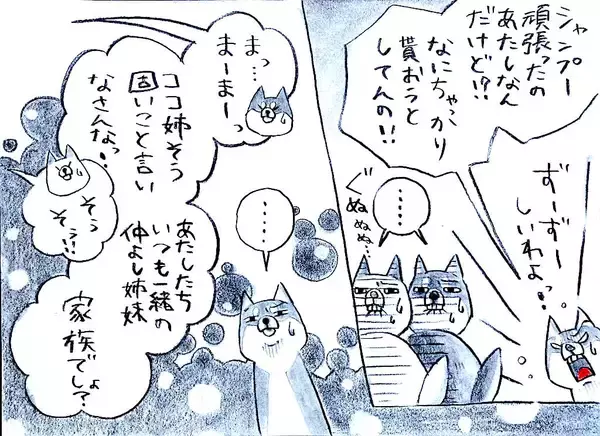 シャンプー
頑張ったの
あたしなん
だけど!?
なにちゃっかり
貰おうと
してんの!!
ずーずー
しいわよっ!!
……
ぐぬぬぬ…
まっ…
まーまーっ
ココ姉そう
固いこと言い
なさんなっ!
そう
そう!!
……
あたしたち
いつも一緒の
仲よし姉妹
家族でしょ?